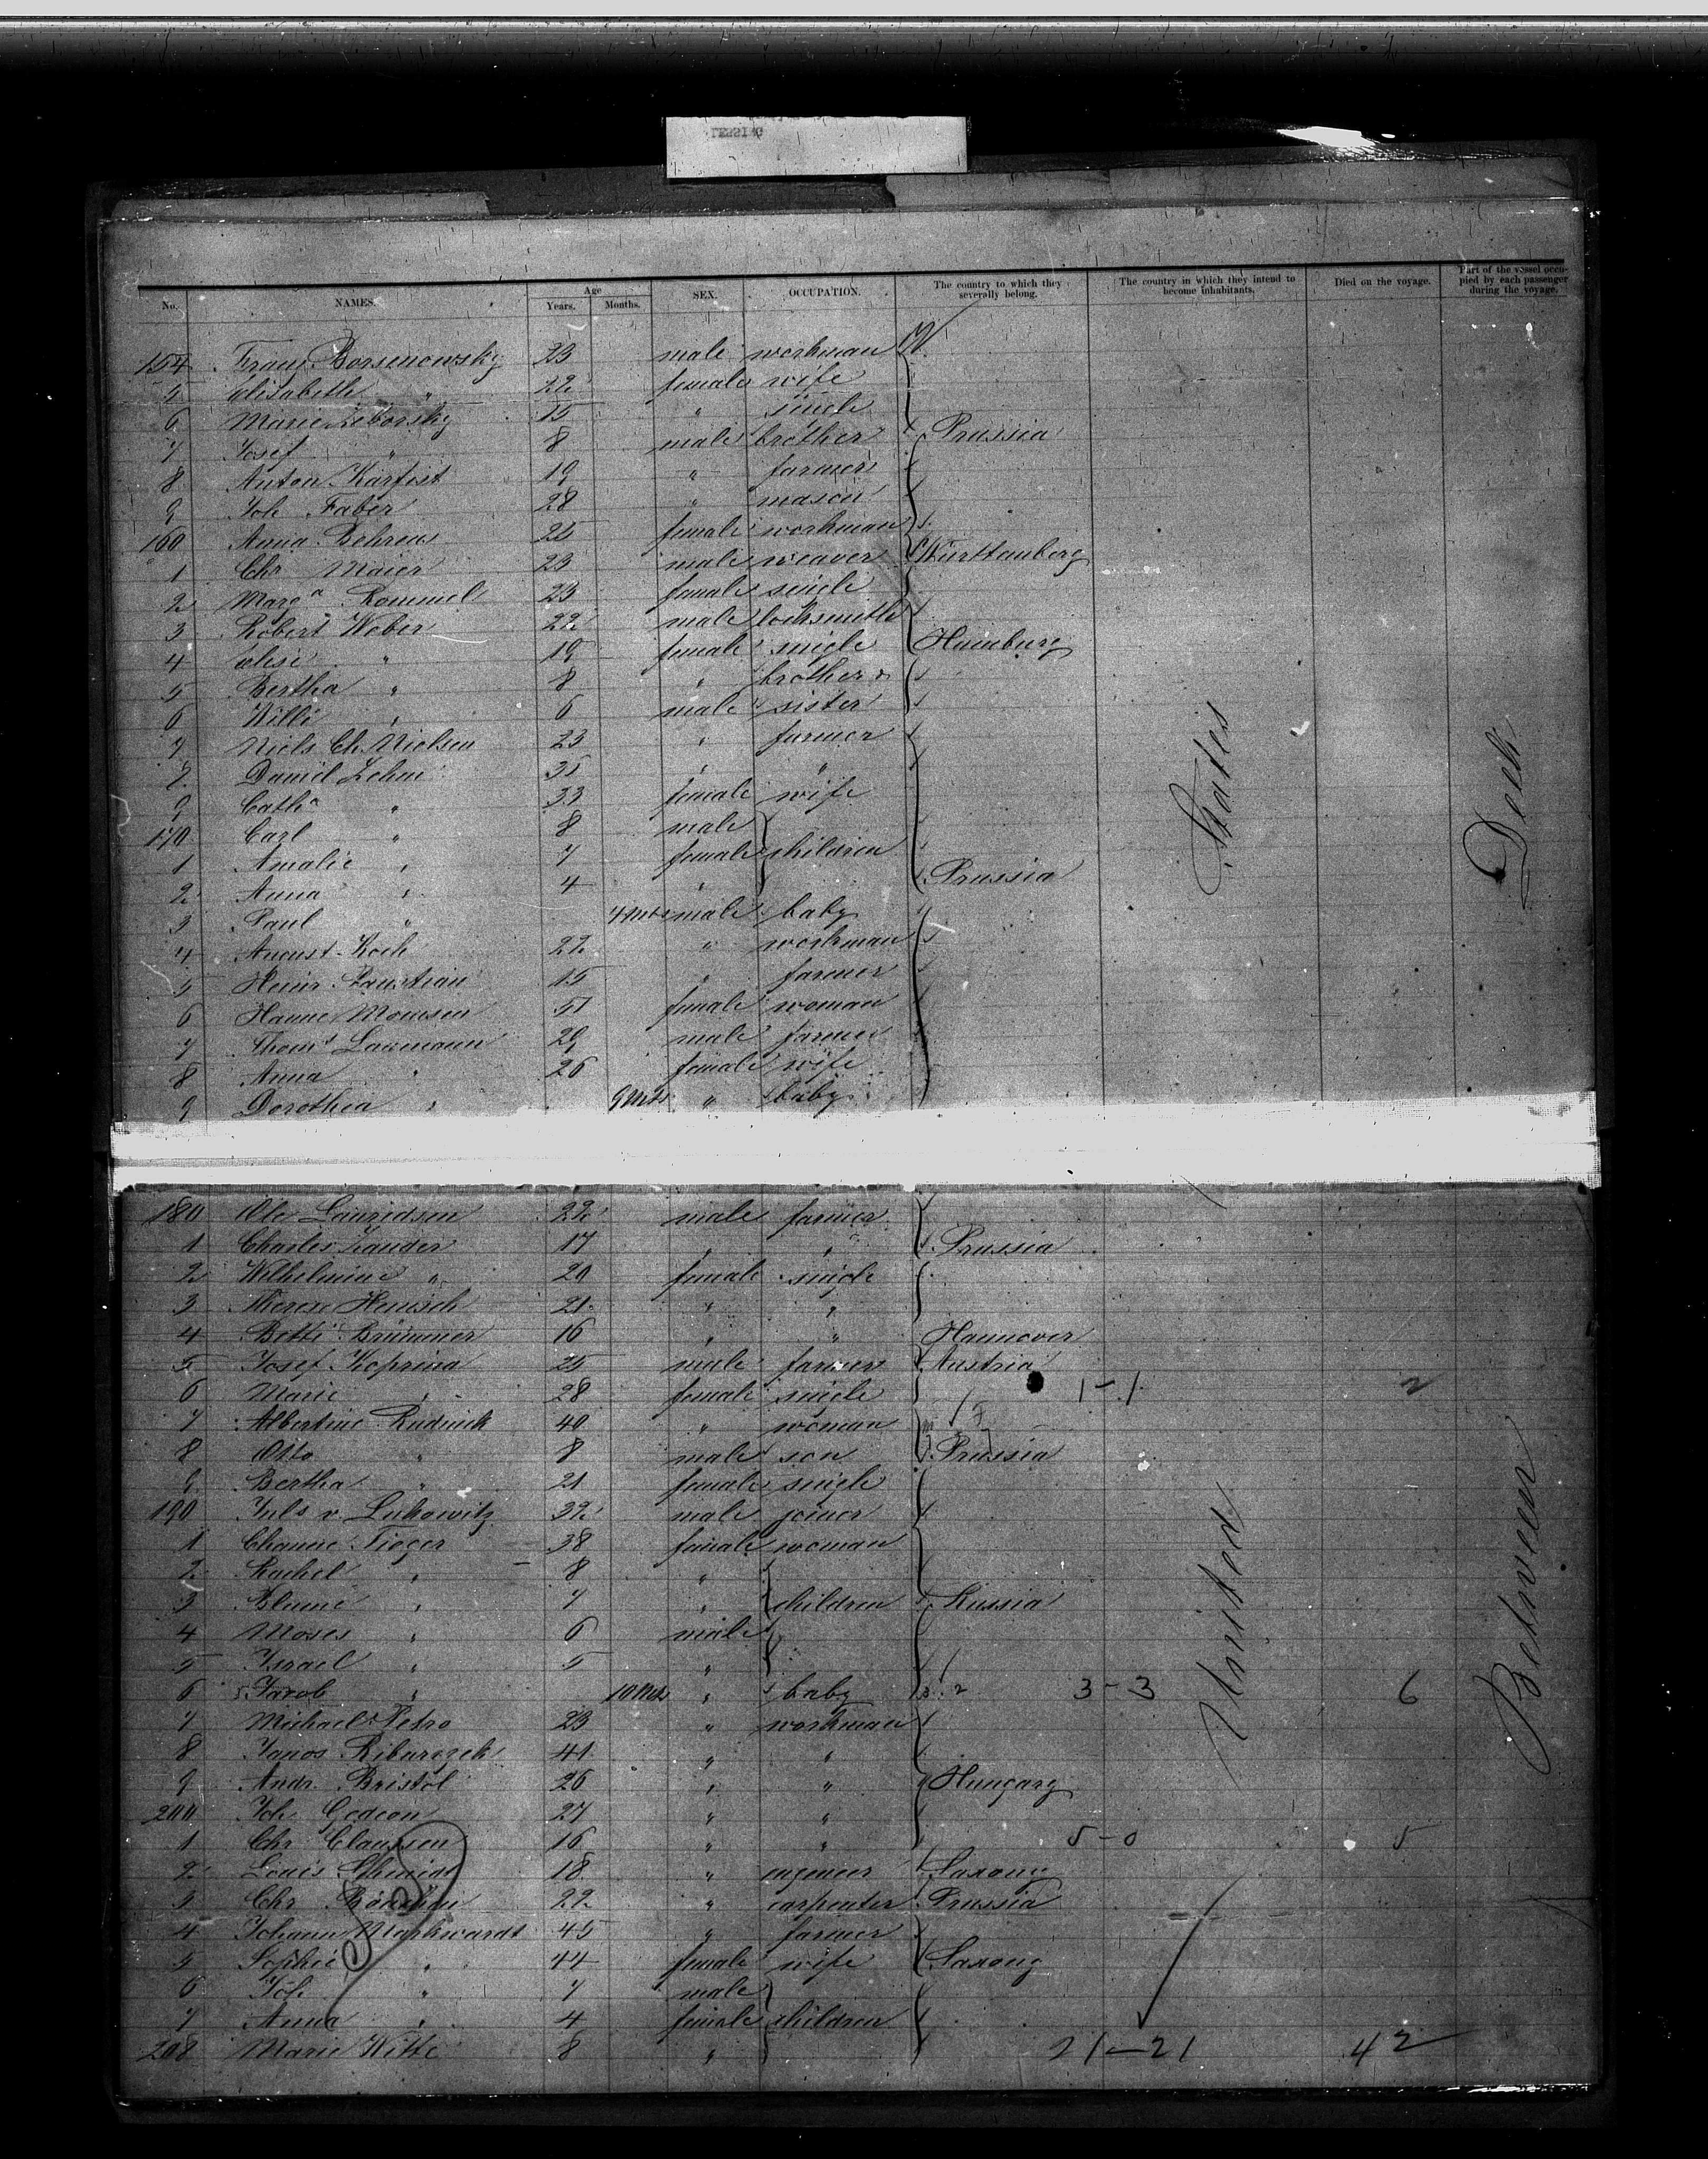 No. NAMES. Age Years. Months. SEX. OCCUPATION. The country to which they severally belong. The country in which they intend to become inhabitants. Died on the voyage. Part of the vessel occupied by each passenger during the voyage.
154 Franz Borsenowsky 23 male workman
5 Elisabeth " 22 female wife
6 Marie 15 " single
7 Josef " 8 male brother Prussia
8 Anton 19 " farmer
9 Joh Faber 28 " mason
160 Anna Behrens 24 female workman
1 Chr Maier 23 male weaver Württemberg
2 Marga Rommel 23 female single
3 Robert Weber 22 male locksmith
4 Elise " 19 female single Hamburg
5 Bertha " 8 " brother &
6 Willi " 6 male sister
7 Niels Ch. Nielsen 23 " farmer
8 Daniel 35 " "
9 Catha " 33 female wife
170 Carl " 8 male
1 Amalie " 7 female children
2 Anna " 4 " Prussia
3 Paul " 7 Mts male baby
4 August Koch 22 " workman
5 Heinr. Faustian 15 " farmer
6 Hanne Momsen 51 female woman
7 Thoms Laumann 29 male farmer
8 Anna " 26 female wife
9 Dorothea " 9 Mts " baby
180 Ole Lauridsen 22 male farmer
1 Charles Zander 17 " " Prussia
2 Wilhelmine " 20 female single
3 Therese Henisch 21 " "
4 Betti Brümmer 16 " " Hannover
5 Josef Koprina 25 male farmer Austria
6 Marie " 28 female single 1-1 2
7 Albertine Rudnick 40 " woman
8 Otto " 8 male son Prussia
9 Bertha " 21 female single
190 Juls v. Lukowitz 32 male joiner
1 Channe Tieger 38 female woman
2 Rachel " 8 "
3 Blume " 7 " children Russia
4 Moses " 6 male
5 Israel " 5 "
6 Jacob " 10 Mts " baby 3-3 6
7 Michael Petro 23 " workman
8 Janos 41 " "
9 Andr. Bristol 26 " " Hungary
200 Joh Gedeon 27 " "
1 Chr Claussen 16 " " 5-0 5
2 Louis Schmidt 18 " engineer Saxony
3 Chr 22 " carpenter Prussia
4 Johann Markwardt 45 " farmer
5 Sophie " 44 female wife Saxony
6 Joh " 7 male
7 Anna " 4 female children
208 Marie Witte 8 " 21-21 42
United States
Between Deck